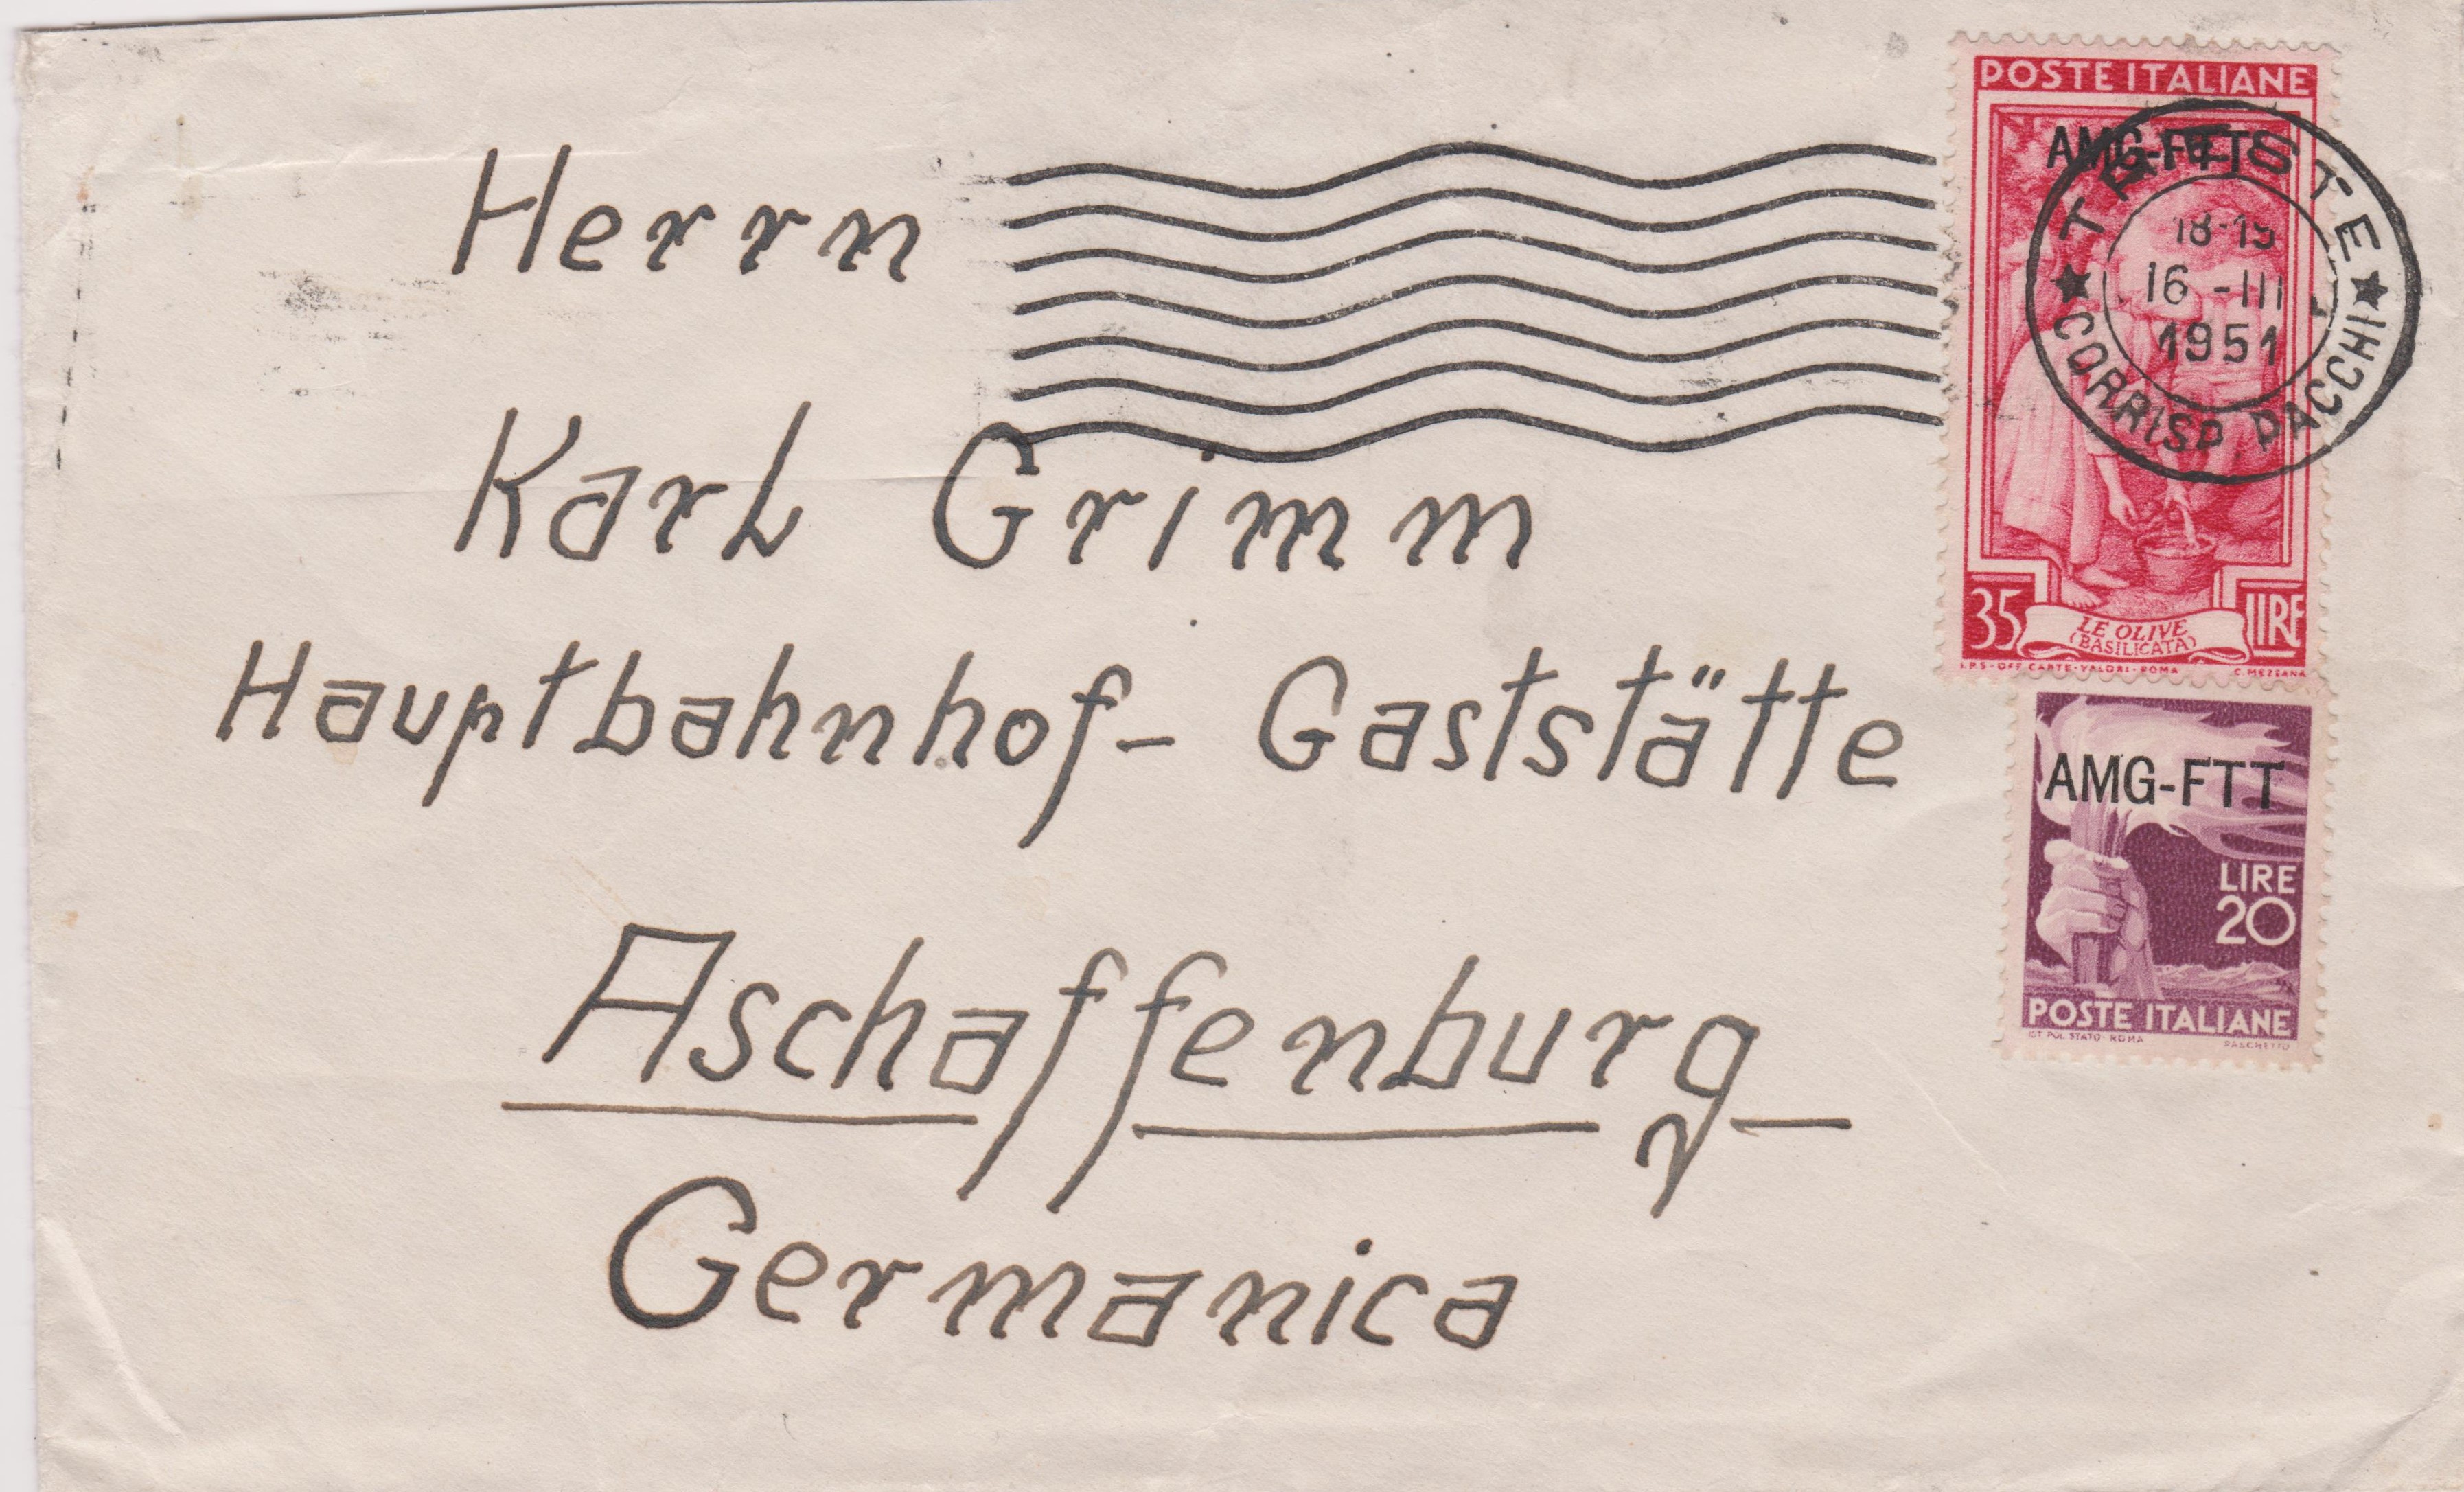 POSTE ITALIANE
AMG-FTT
TRIESTE
18-19
16 -III
1951
CORRISP. PACCHI
35 LIRE
LE OLIVE
(BASILICATA)
I.P.S-OFF. CARTE-VALORI-ROMA C. MEZZANA
AMG-FTT
LIRE
20
POSTE ITALIANE
IST. POL. STATO-ROMA PASCHETTO
Herrn
Karl Grimm
Hauptbahnhof- Gaststätte
Aschaffenburg
Germanica